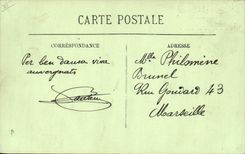 CARTE POSTALE
CORRESPONDANCE
Per ben dansa viva
auvergnats
ADRESSE
Mlle Philomène
Brunel
Rue Goudard 43
Marseille